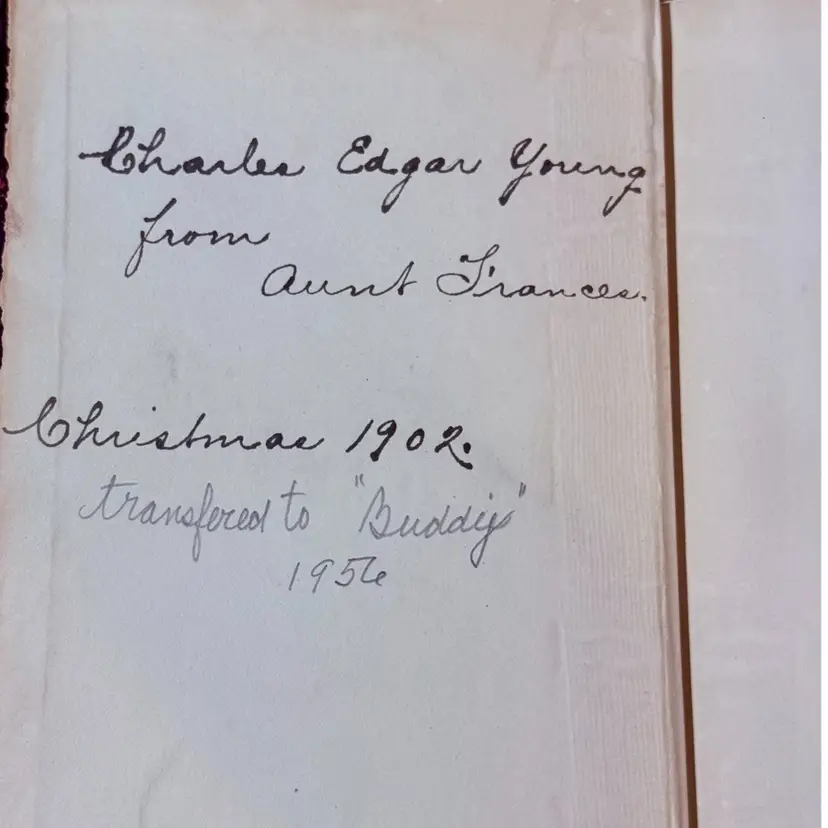 Charles Edgar Young
from
Aunt Frances.
Christmas 1902.
transfered to "Buddy"
1956